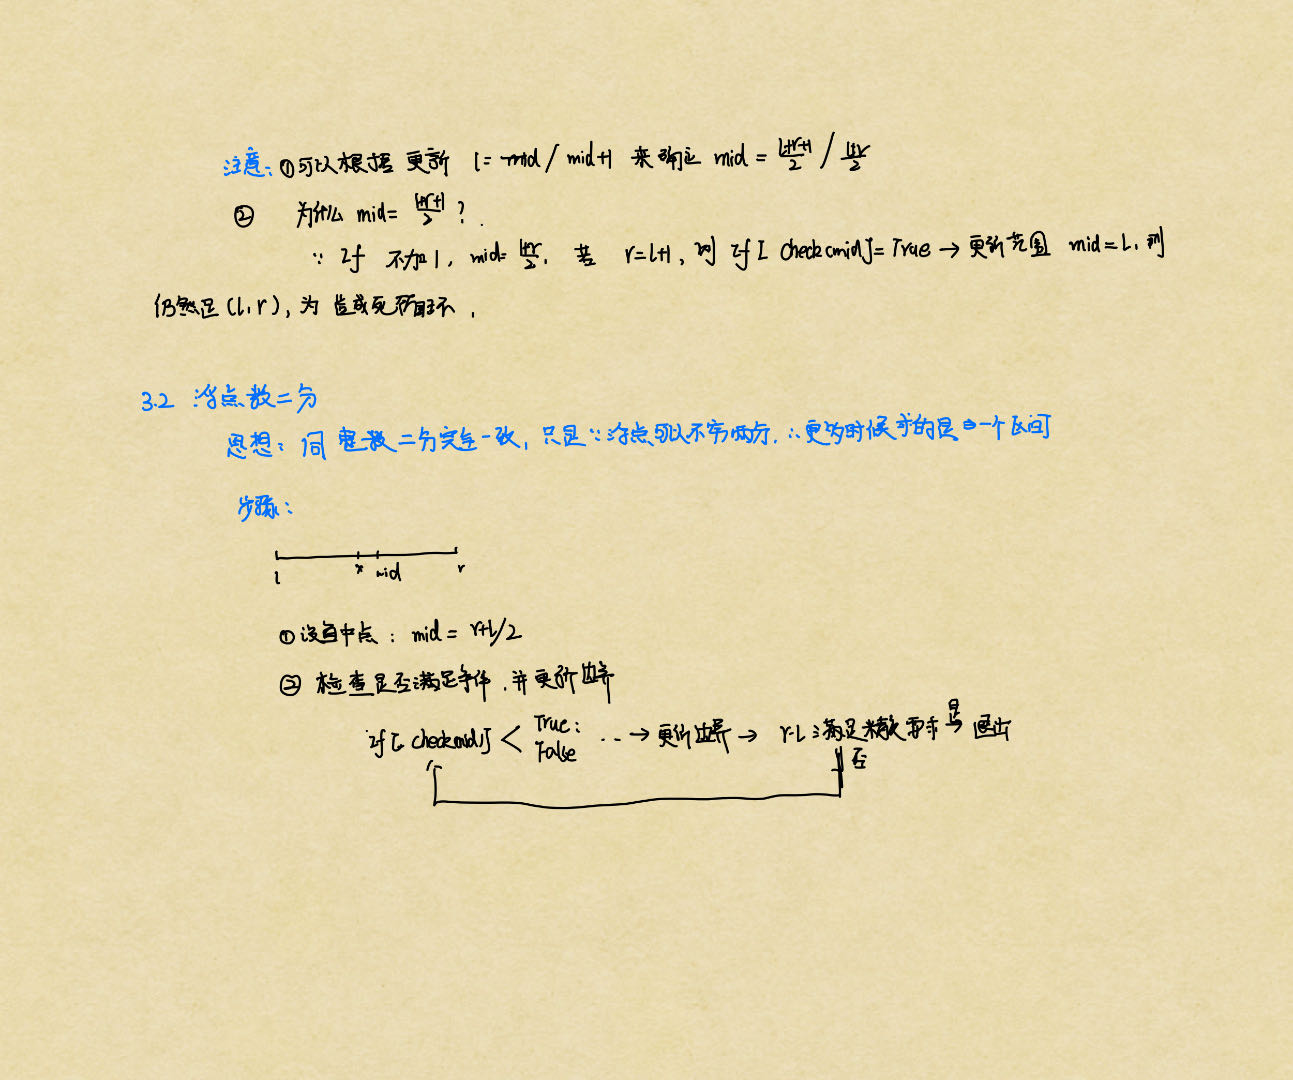 注意:①可以根据 更新 l=mid/mid+1 来确定 mid = l+r+1/2 / l+r/2
② 为什么 mid= l+r+1/2 ?
∵ If 不加1, mid= l+r/2, 若 r=l+1, 则 if [ check(mid)]=True → 更新范围 mid=L, 则
仍然是(l,r), 为 造成死循环,
3.2 浮点数二分
思想: 同 整数二分完全一致, 只是∵浮点可以不 ∴更多时候求的是 一个区间
步骤:
l x mid r
①设置中点: mid = r+l/2
② 检查是否满足条件,并更新边界
if [ check(mid)] < True: False ·· → 更新边界 → r-L 满足精度要求 是→ 退出
否